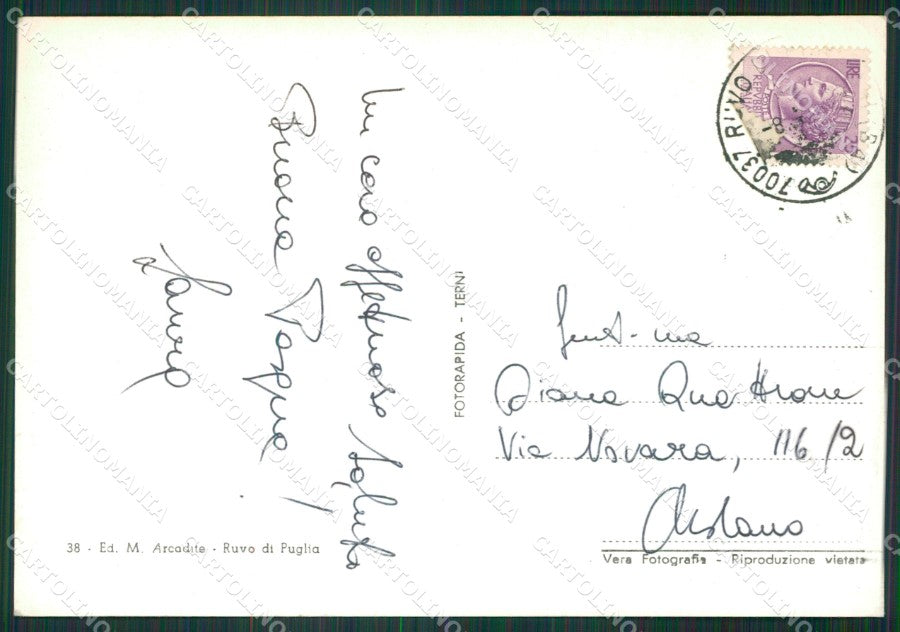 Un caro affettuoso saluto
Buona Pasqua!
Laura
38 - Ed. M. Arcadite - Ruvo di Puglia
FOTORAPIDA - TERNI
LIRE 25
70037 RUVO
(BA)
Gent-ma
Diana Quattrone
Via Novara, 116/2
Milano
Vera Fotografia - Riproduzione vietata
CARTOLINOMANIA